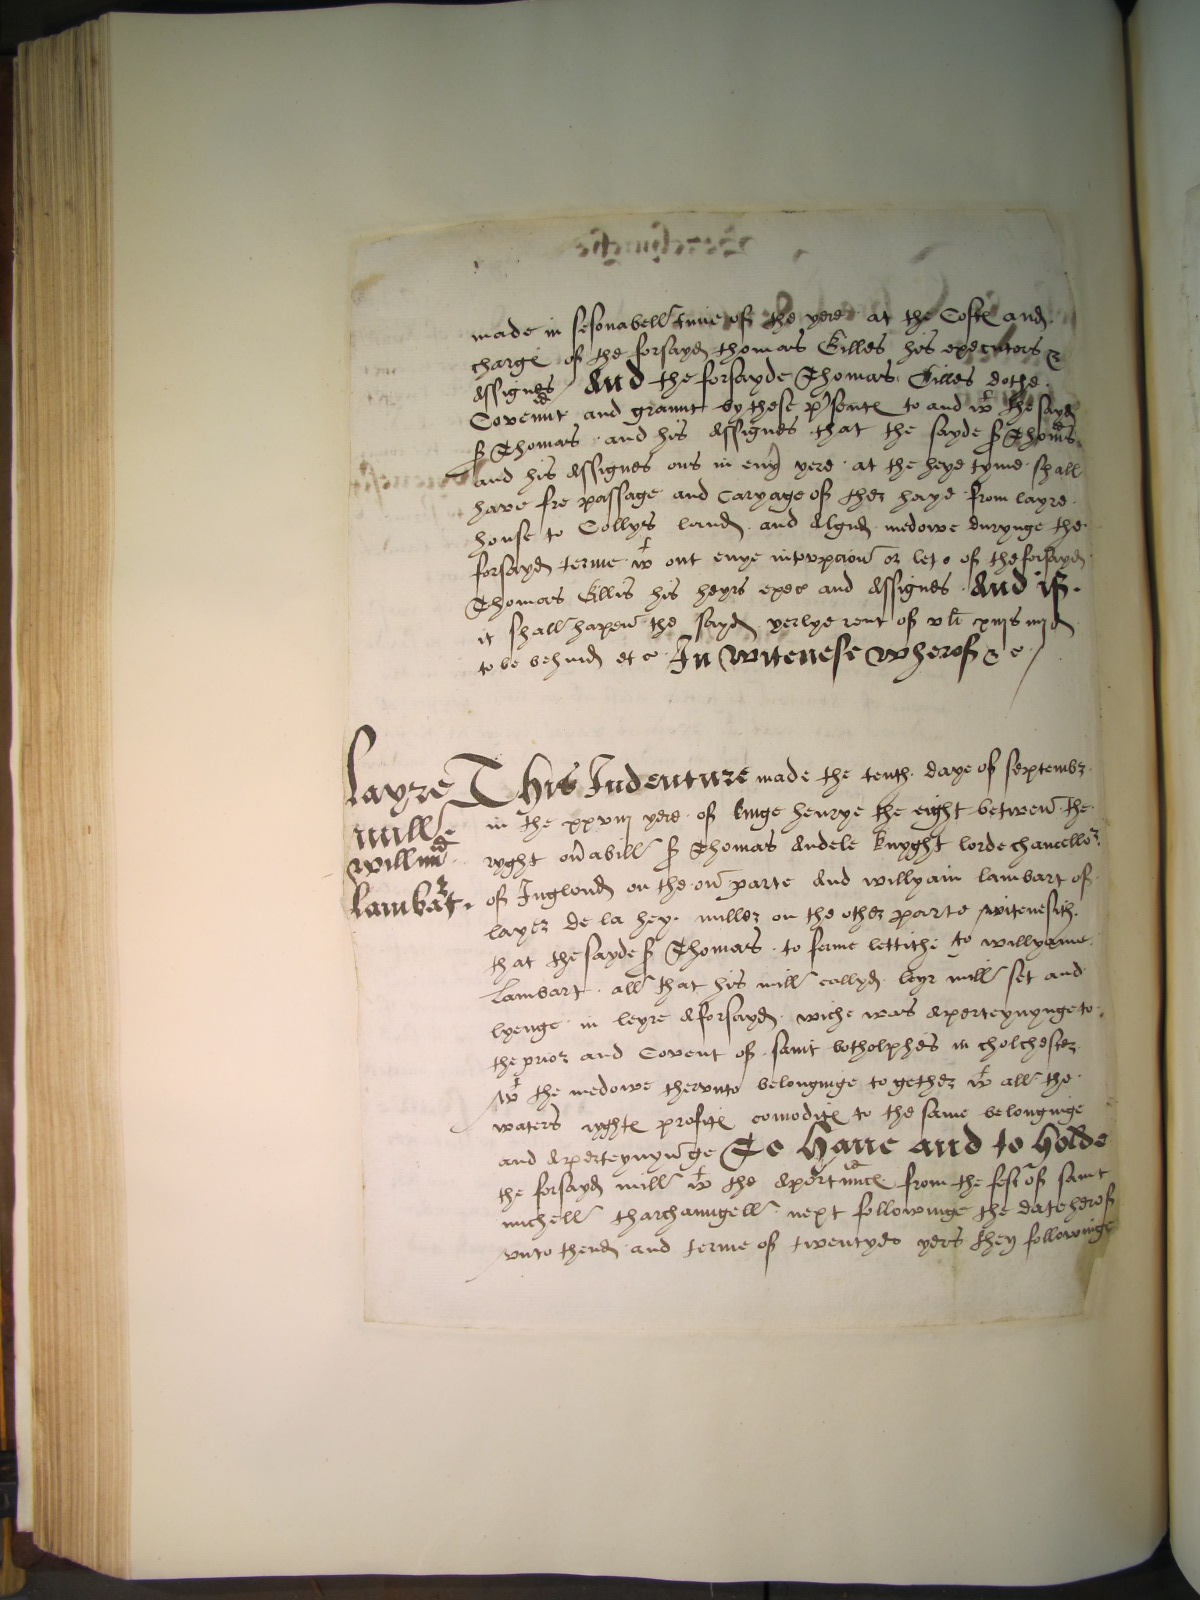 made in sesonabell tyme of the yere at the Cost and
charge of the forsayd thomas Elles his executors &
Assignes And the forsayde Thomas Elles dothe
Covennt and graunt by these psente to and wt the sayd
Sr Thomas and his Assignes that the sayde Sr Thomas
and his Assignes ons in eny yere at the heye tyme shall
have fre passage and caryage of ther haye from layre
house to Collyes land and medowe durynge the
forsayd terme wt out enye intrupcion or let of the forsayd
Thomas Ellis his heyrs exec and Assignes And if
it shall hapen the sayd yerlye rent of vli xiijs iiijd
to be behind etc In witenese wherof &c
layre
mill
willm
lambart
This Indenture made the tenth daye of septembr
in the xxviij yere of kinge henrye the eight betwen the
ryght onabill Sr Thomas Audele knyght lorde chancellor
of Inglond on the on parte And willyam lambart of
layer de la hey miller on the other parte witenesith
that the sayde Sr Thomas to ferme lettithe to willyame
Lambart all that his mill callyd leyr mill set and
lyenge in leyre Aforsayd wiche was Aperteynynge to
the prior and Covent of saint botholphes in Cholchester
wt the medowe therunto belonginge to gether wt all the
waters ryghte profite comodite to the same belonginge
and Aperteynynge To Haue and to Holde
the forsayd mill wt the Apertunnce from the fest of saint
michell tharchaungell next followinge the date herof
vnto thend and terme of twentye yers then followinge